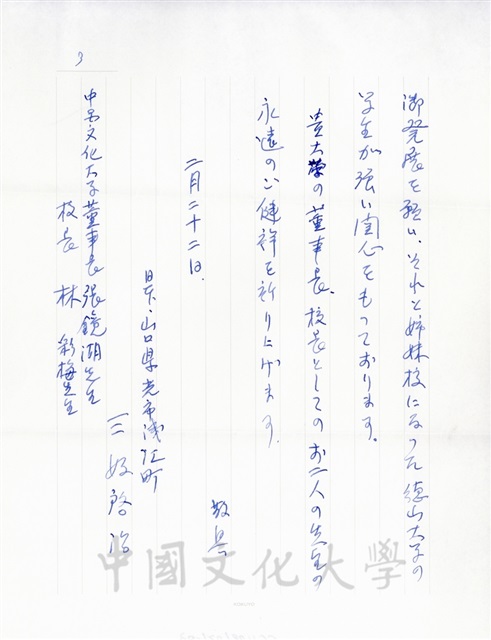 3
御発展を願い、それと姉妹校になった徳山大学の
学生が強い関心をもっております。
貴大学の董事長、校長としてのお二人の先生の
永遠のご健祥を祈り上げます。
二月二十二日、
敬具
日本・山口県光市浅江町
三好啓治
中国文化大学董事長 張鏡湖先生
校長 林彩梅先生
中國文化大學